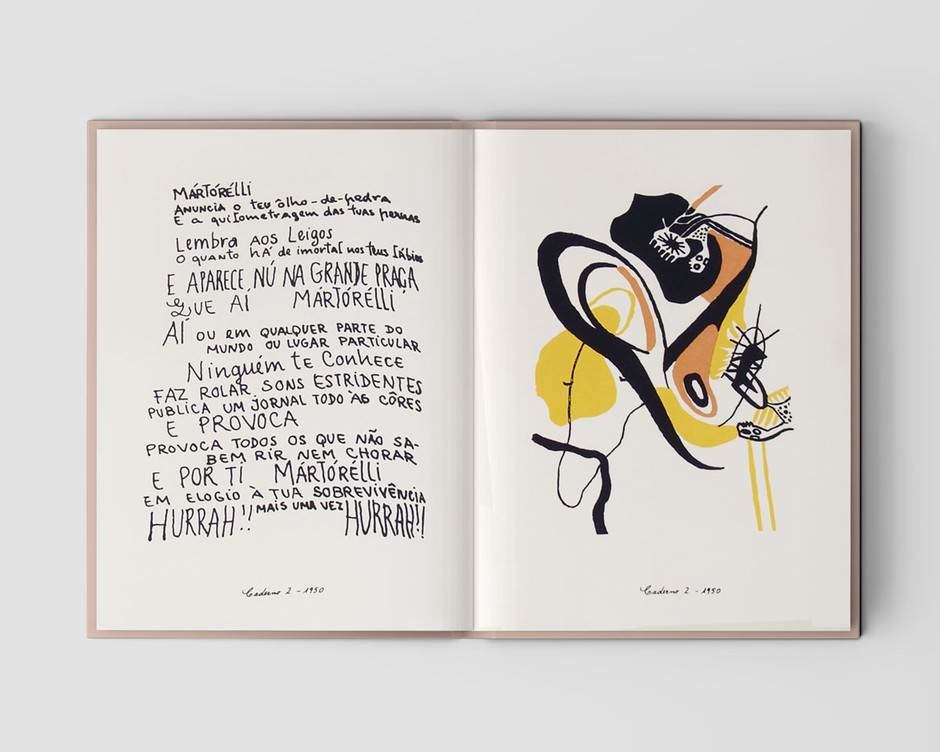 MÁRTÓRÉLLI
ANUNCIA O TEU ÔLHO-de-pedra
E a quilometragem das tuas pernas
Lembra AOS Leigos
O quanto HÁ de imortal nos teus lábios
E APARECE NÚ NA GRANDE PRAÇA
QUE AÍ MÁRTÓRÉLLI
AÍ OU em QUALQUER PARTE DO
MUNDO OU LUGAR PARTICULAR
Ninguém te Conhece
FAZ ROLAR SONS ESTRIDENTES
PUBLICA UM JORNAL TODO AS CÔRES
E PROVOCA
PROVOCA TODOS OS QUE NÃO SA-
BEM RIR NEM CHORAR
E POR TI MÁRTÓRÉLLI
EM ELOGIO À TUA SOBREVIVÊNCIA
HURRAH!! MAIS UMA VEZ HURRAH!!
Caderno 2 - 1950
Caderno 2 - 1950